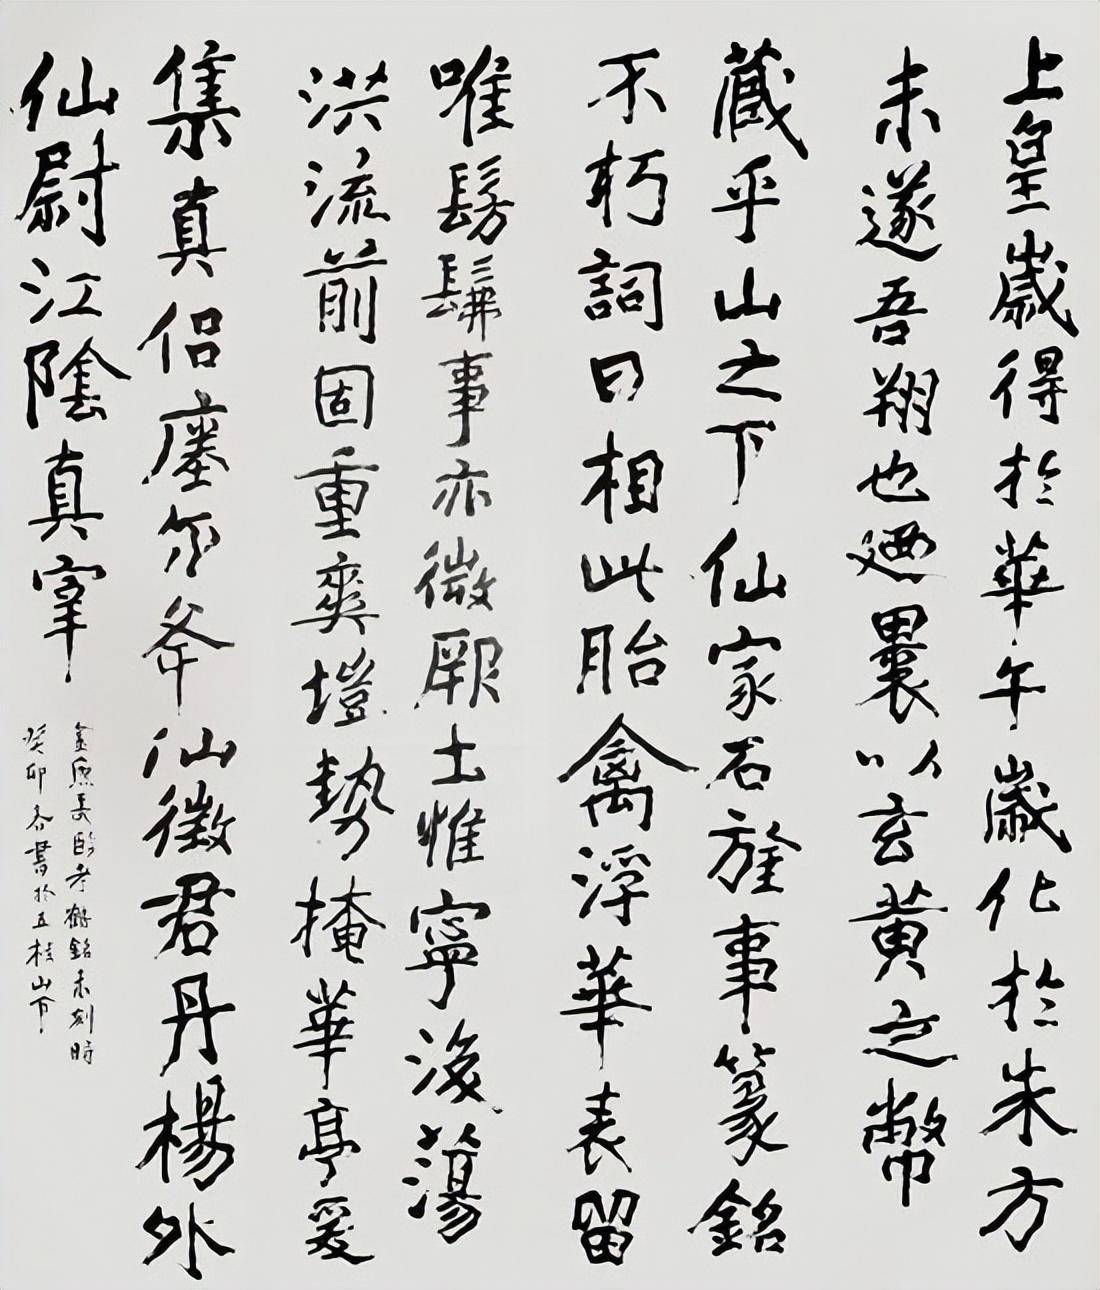 上皇歲得於華午歲化於朱方
未遂吾翔也迺裹以玄黄之幣
藏乎山之下仙家石旌事篆銘
不朽詞曰相此胎禽浮華表留
唯髣髴事亦微厥土惟寧後蕩
洪流前固重爽塏勢掩華亭爰
集真侣瘞尔夅仙徵君丹楊外
仙尉江陰真宰
鶴銘未刻時
癸卯春書於五桂山下